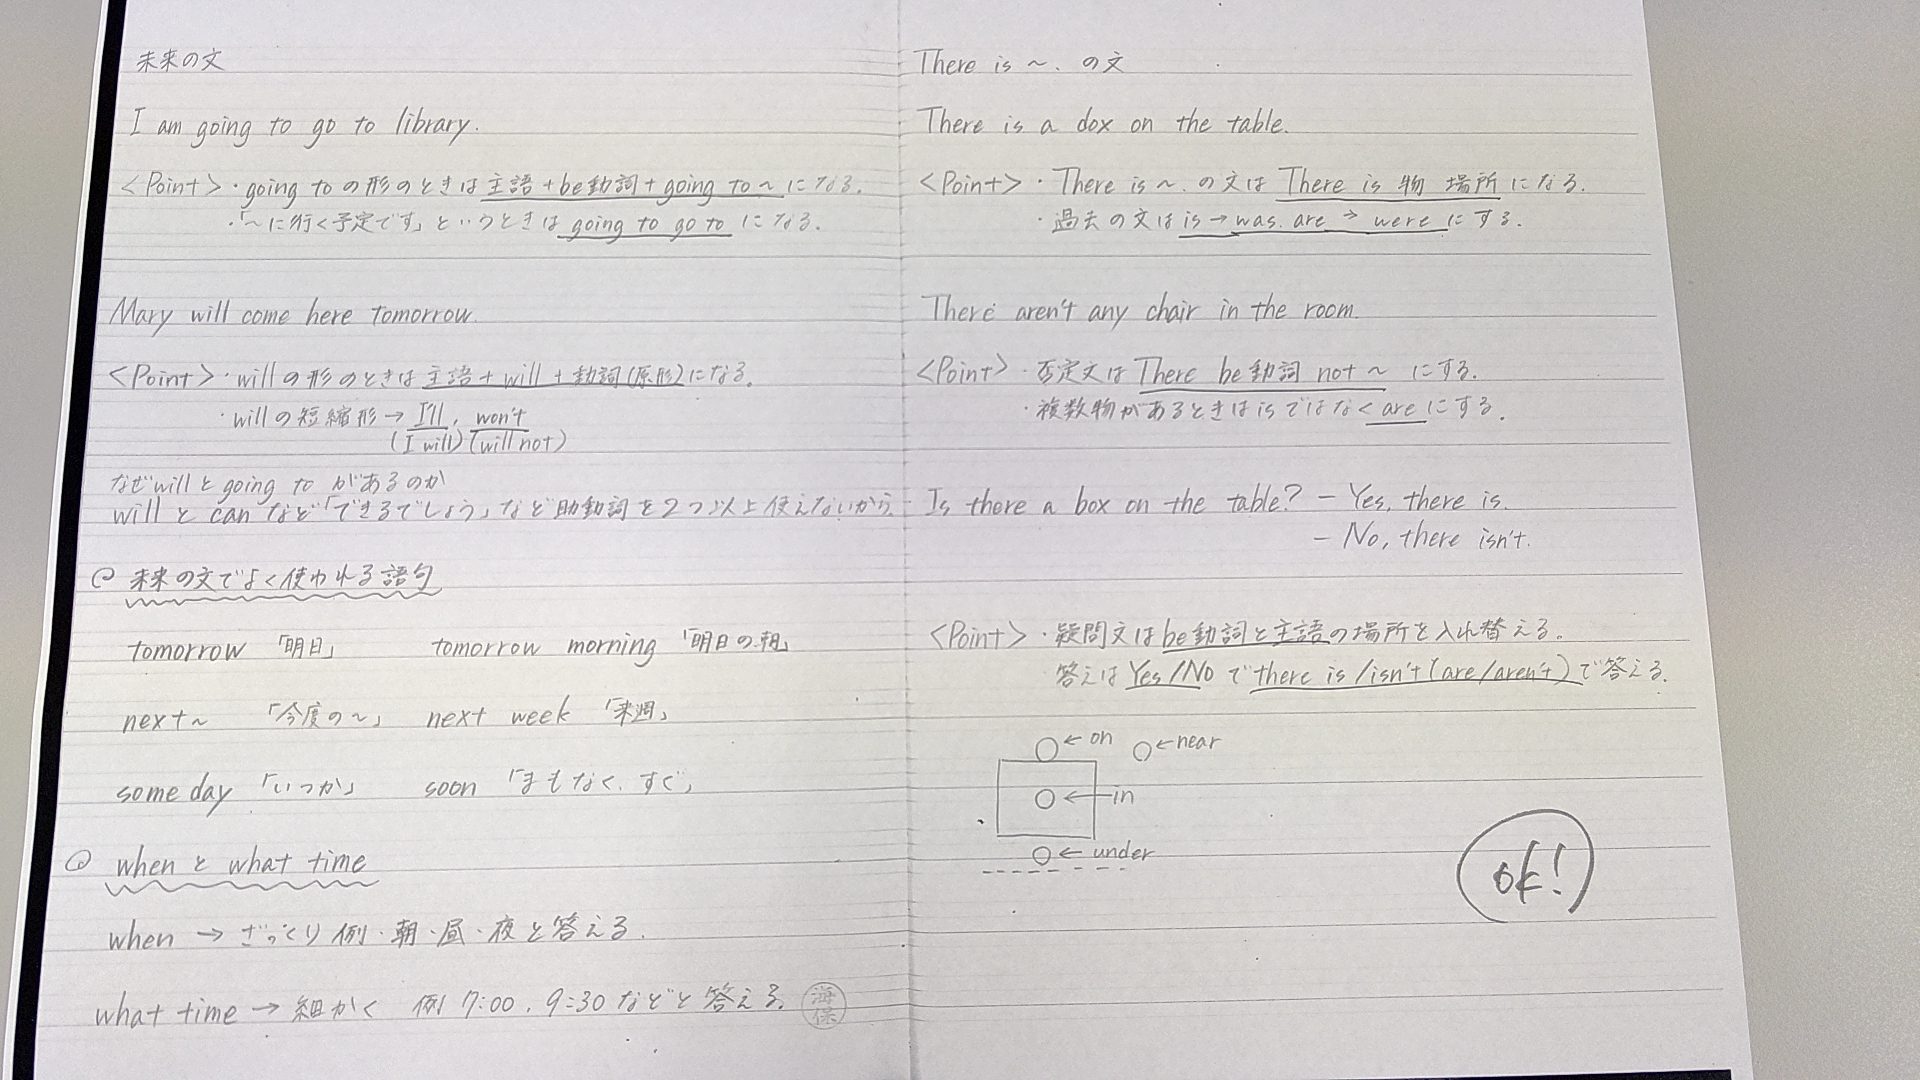 未来の文
I am going to go to library.
<Point>・going toの形のときは主語+be動詞+going to~になる.
・「~に行く予定です」というときはgoing to go toになる.
Mary will come here tomorrow.
<Point>・willの形のときは主語+will+動詞(原形)になる.
・willの短縮形→I'll, won't
(I will)(will not)
なぜwillとgoing toがあるのか
willとcanなど「できるでしょう」など助動詞を2つ以上使えないから.
未来の文でよく使われる語句
tomorrow 「明日」 tomorrow morning 「明日の朝」
next~ 「今度の~」 next week 「来週」
some day 「いつか」 soon 「まもなく、すぐ」
whenとwhat time
when→ざっくり 例・朝・昼・夜と答える.
what time→細かく 例 7:00, 9:30などと答える.
海保
There is ~. の文
There is a dox on the table.
<Point>・There is~.の文はThere is 物 場所になる.
・過去の文はis→was. are→wereにする.
There aren't any chair in the room.
<Point>・否定文はThere be動詞 not~にする.
・複数物があるときはisではなくareにする.
Is there a box on the table? - Yes, there is.
- No, there isn't.
<Point>・疑問文はbe動詞と主語の場所を入れ替える.
答えはYes/Noでthere is/isn't(are/aren't)で答える.
←on ←near
←in
←under
ok!